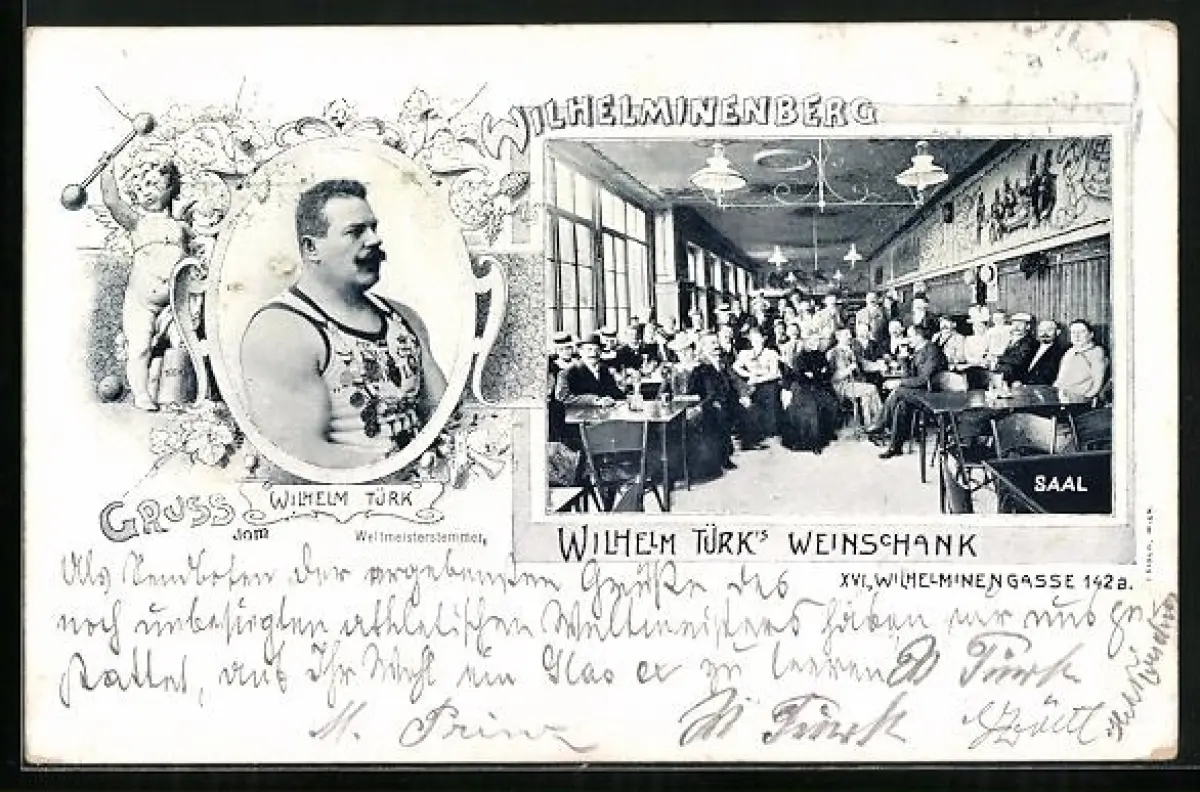 WILHELMINENBERG
SAAL
GRUSS vom
WILHELM TÜRK
Weltmeisterstemmer,
WILHELM TÜRK'S WEINSCHANK
XVI, WILHELMINENGASSE 142a.
Als Sendboten der ergebensten Grüße des
noch unbesiegten athletischen Weltmeisters haben wir uns ge-
stattet, auf Ihr Wohl ein Glas zu leeren W Türk
M. Prinz W Türk